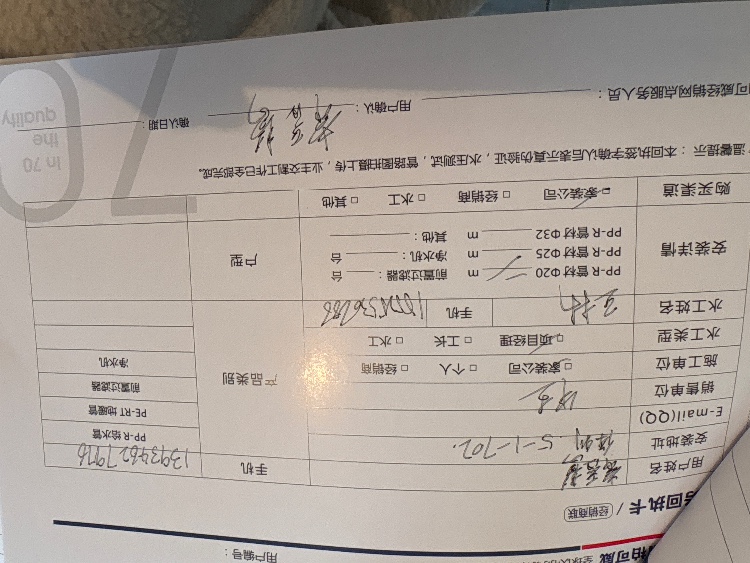 用户编号：
回执卡 / 经销商联
用户姓名 手机 13934627976
安装地址 5-1-702. PP-R 给水管
E-mail(QQ) PE-RT 地暖管
销售单位 前置过滤器
施工单位 □ 家装公司 □ 个人 □ 经销商 产品类别 净水机
水工类型 □ 项目经理 □ 工长 □ 水工
水工姓名 手机
安装详情 PP-R 管材 Φ20 m 前置过滤器： 台 户型
PP-R 管材 Φ25 m 净水机： 台
PP-R 管材 Φ32 m 其他：
购买渠道 □ 家装公司 □ 经销商 □ 水工 □ 其他
温馨提示：本回执签字确认后表示真伪验证，水压测试，管路图拍照上传，业主交割工作已全部完成。
可威经销网点服务人员： 用户确认： 确认日期：
In 70
the
quality
70